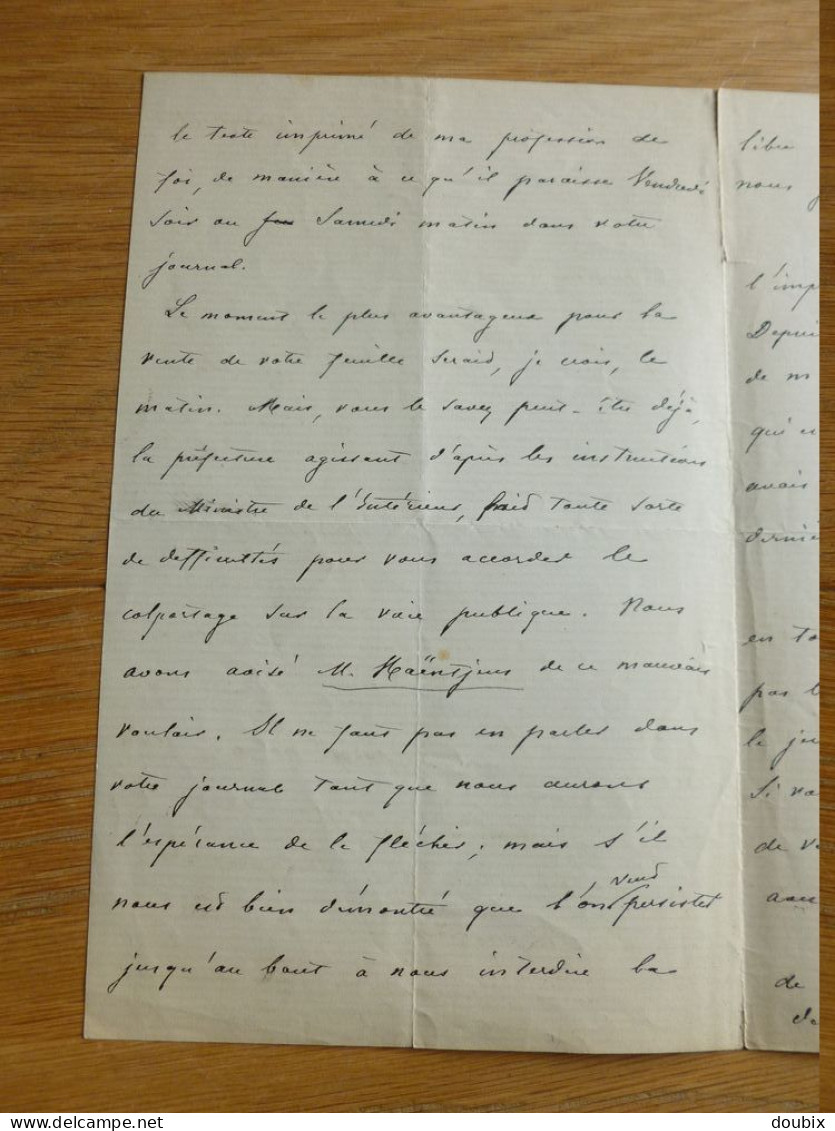 le texte imprimé de ma profession de
foi, de manière à ce qu'il paraisse Vendredi
soir ou Samedi matin dans votre
journal.
Le moment le plus avantageux pour la
vente de votre feuille serait, je crois, le
matin. Mais, vous le savez peut-être déjà,
la préfecture agissant d'après les instructions
du Ministre de l'Intérieur, fait toute sorte
de difficultés pour vous accorder le
colportage sur la voie publique. Nous
avons avisé M. Haëntjens de ce mauvais
vouloir. Il ne faut pas en parler dans
votre journal tant que nous aurons
l'espérance de le fléchir; mais s'il
nous est bien démontré que l'on veut persister
jusqu'au bout à nous interdire la
libre
nous
l'imp
Depui
de m
qui
avais
derniè
en to
pas l
le ju
Si vo
de v
de
delcampe.net
doubix